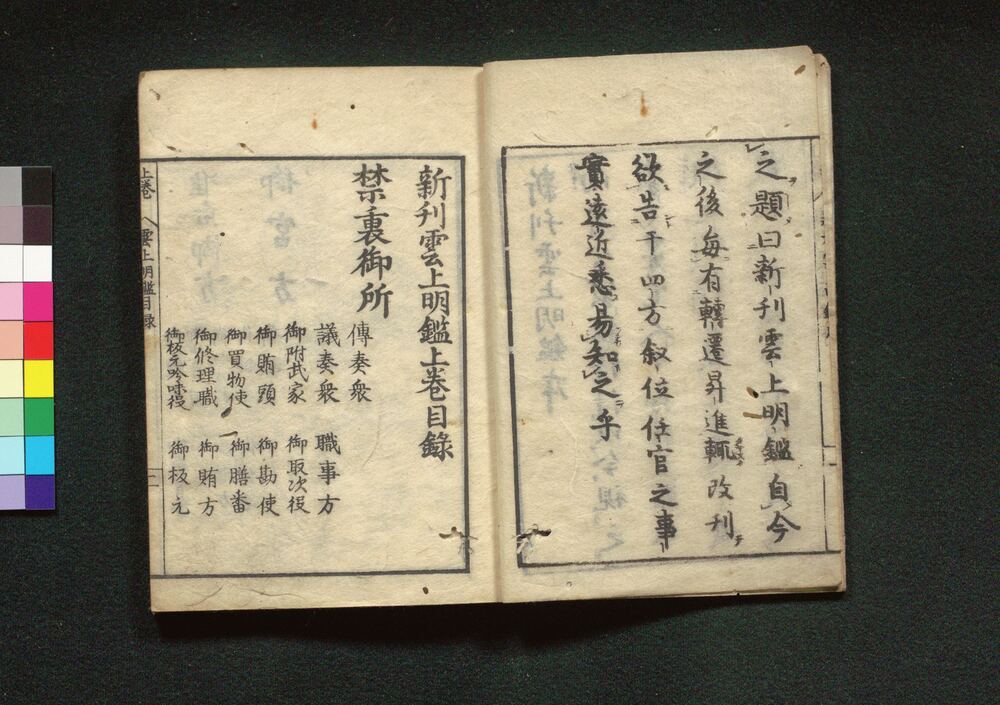 之題曰新刊雲上明鑑自今
之後毎有轉遷昇進輒改刊
欲告于四方叙位任官之事
實遠近悉易知之乎
新刊雲上明鑑上巻目録
禁裏御所
傳奏衆
議奏衆　職事方
御附武家　御取次役
御賄頭　御勘使
御買物使　御膳番
御修理職　御賄方
御板元吟味役　御板元
上巻　雲上明鑑目録　二